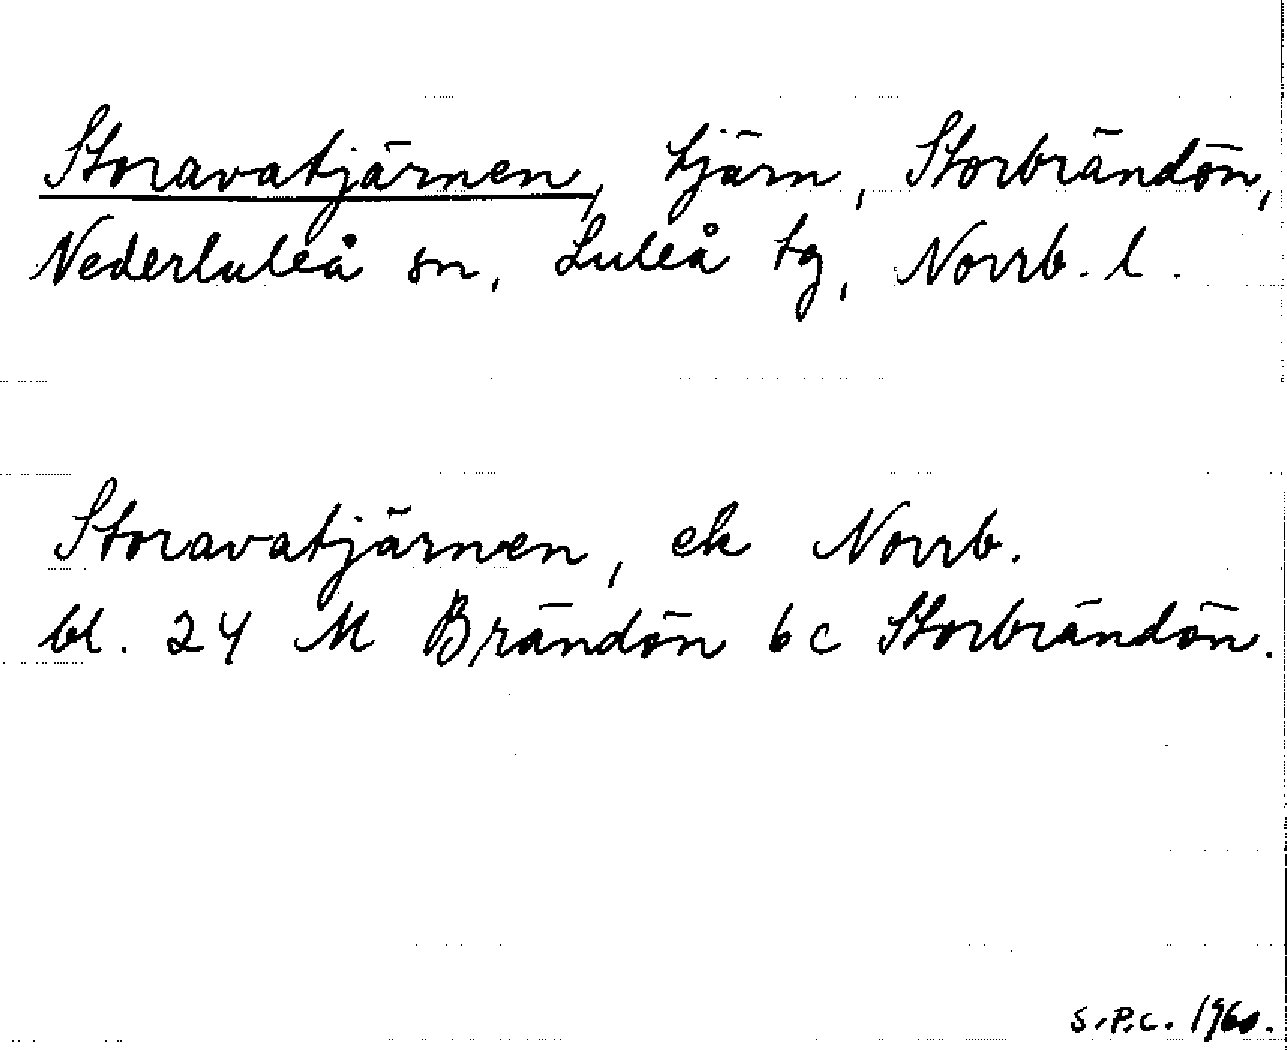 Storavatjärnen, tjärn, Storbrändön,
Nederluleå sn, Luleå tg, Norrb. l.
Storavatjärnen, ek Norrb.
bl. 24 M Brändön 6 c Storbrändön.
S.P.C. 1960.